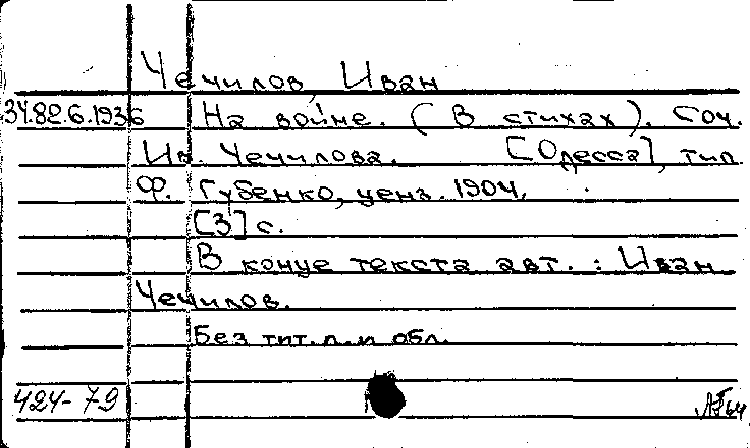 Чечилов, Иван
34.82.6.1936 На войне. (В стихах). Соч.
Ив. Чечилова. [Одесса], тип.
Ф. Губенко, ценз. 1904.
[3] с.
В конце текста авт.: Иван
Чечилов.
Без тит. л. и обл.
424-79